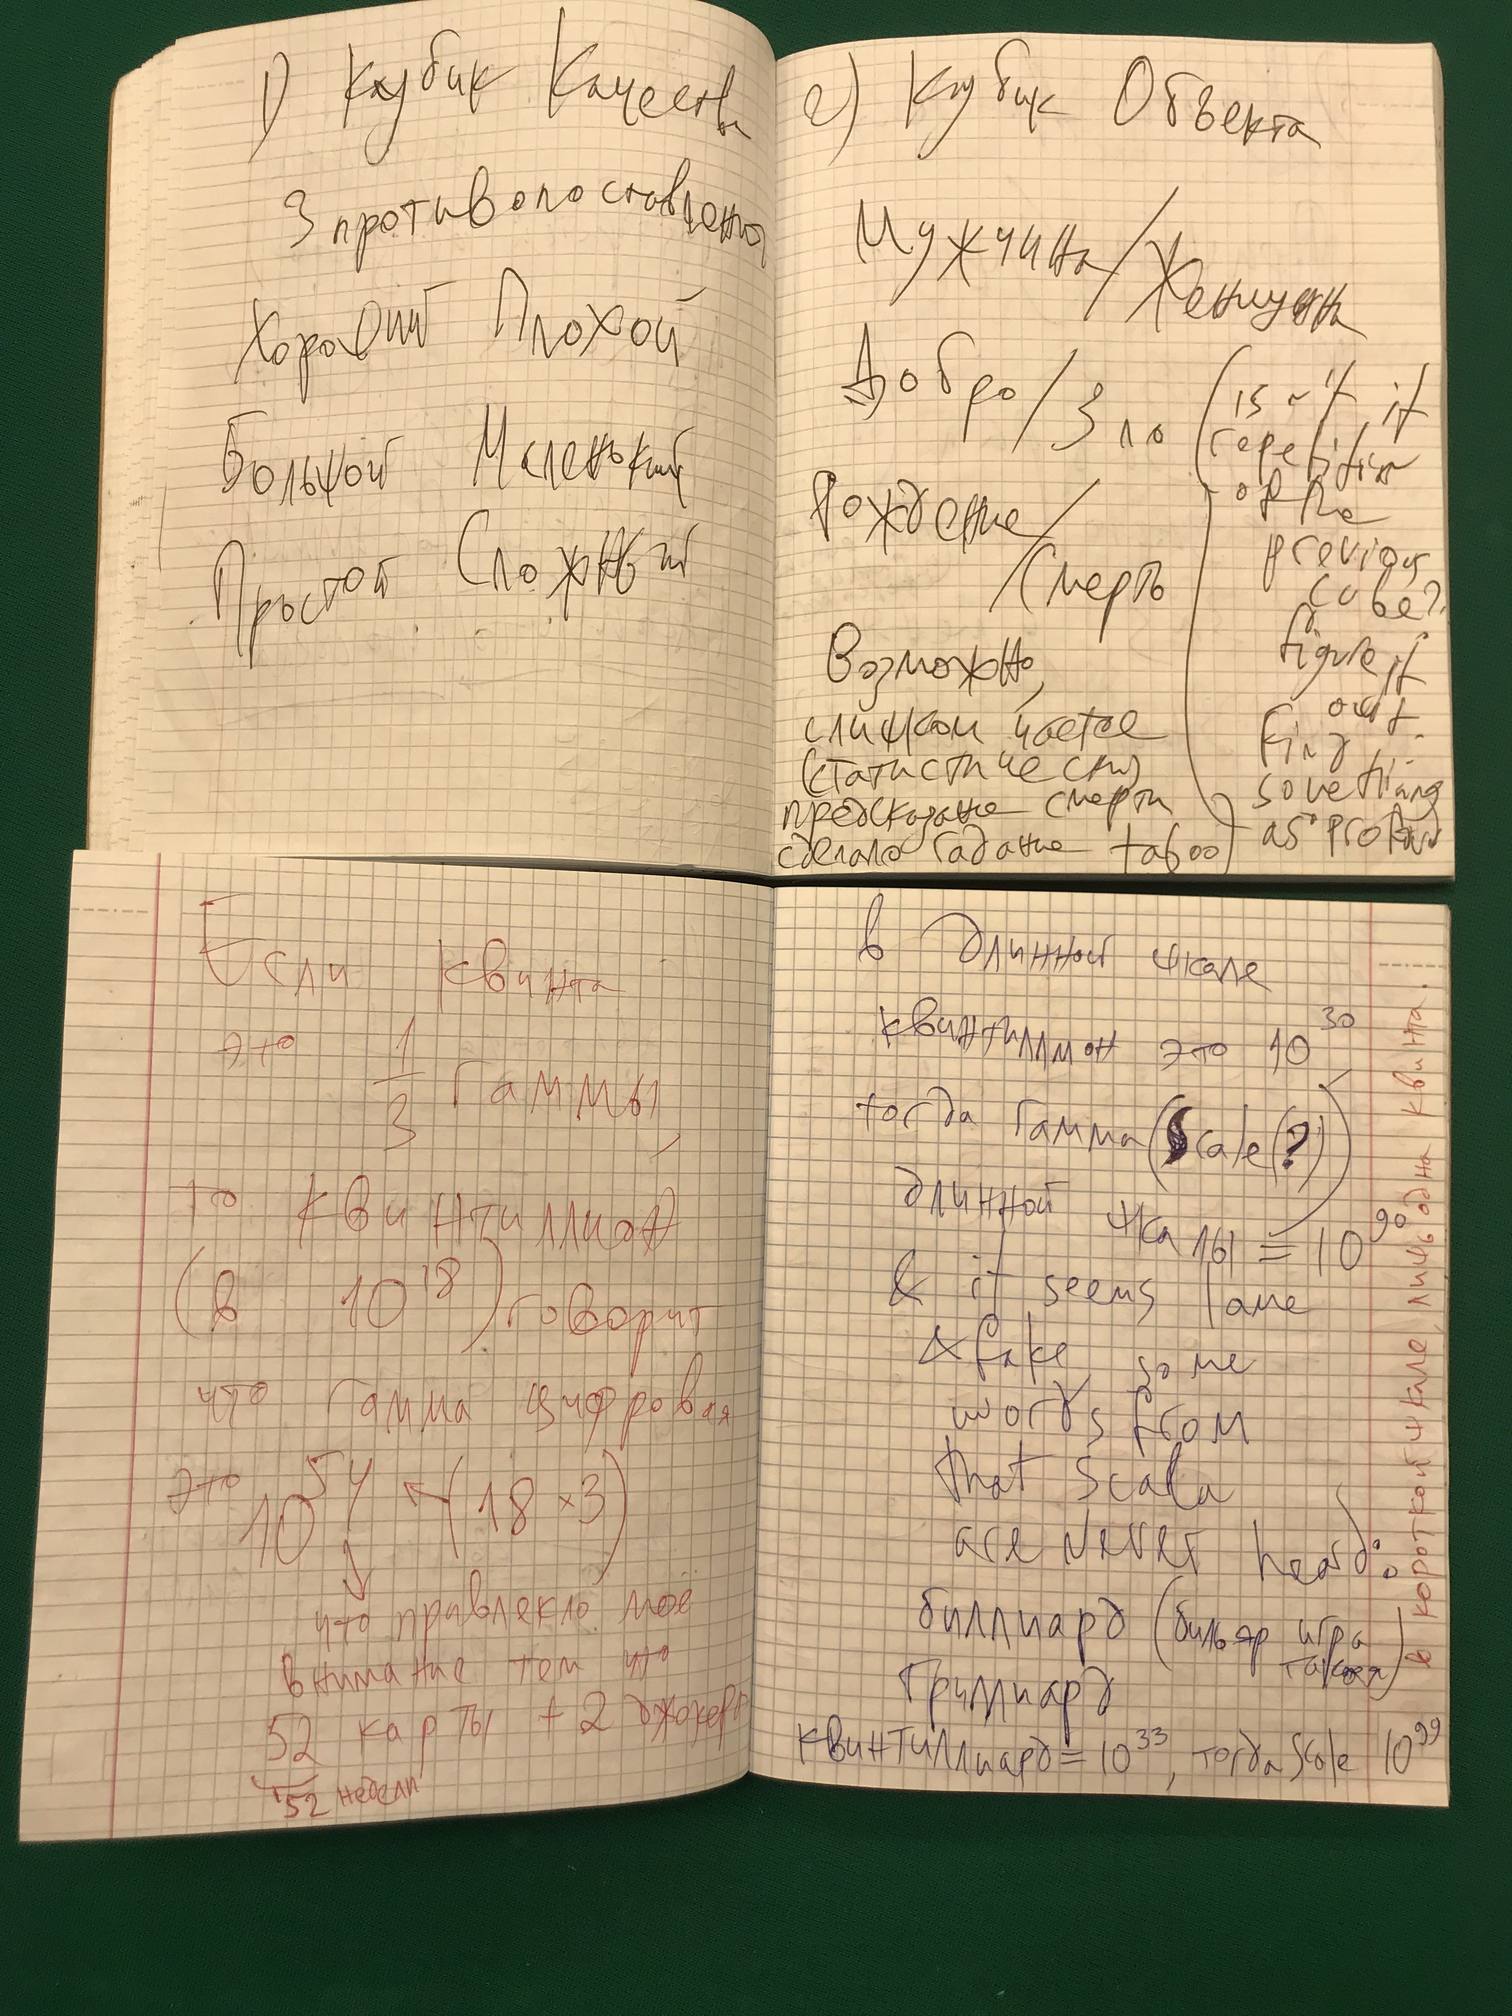 1) Кубик Качества
3 противопоставления
Хороший Плохой
Большой Маленький
Простой Сложный
2) Кубик Объекта
Мужчина/Женщина
Добро/Зло
Рождение/
Смерть
Возможно,
слишком частое
(статистически)
предсказание смерти
сделало гадание taboo)
(isn't it
repetition
of the
previous
cube?
figure it
out.
Find
something
as profound
Если квинта
это 1/3 гаммы,
то квинтиллион
(в 10^18) говорит
что гамма цифровая
это 10^54 ← (18 × 3)
что привлекло моё
внимание тем что
52 карты + 2 джокера
52 недели
в длинной шкале
квинтиллион это 10^30
тогда гамма (Scale(?))
длинной шкалы = 10^90
& it seems lame
& fake some
words from
that scala
are never heard:
биллиард (бильяр игра
такая)
Триллиард
квинтиллиард = 10^33, тогда Scale 10^99
в короткой шкале, лишь одна квинта.